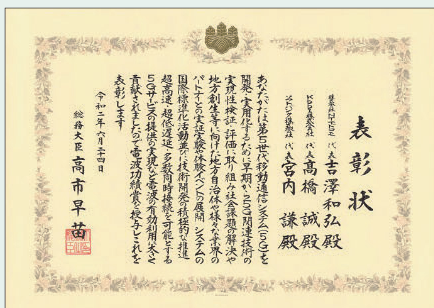 表彰状
株式会社NTTドコモ 代表 吉澤和弘殿
KDDI株式会社 代表 髙橋 誠殿
ソフトバンク株式会社 代表 宮内 謙殿
あなたがたは第5世代移動通信システム(5G)を
開発・実用化するために早期から5G関連技術の
実現性検証・評価に取り組み社会課題の解決や
地方創生等に向けた地方自治体や様々な業界の
パートナーとの実証実験や体験イベントの展開 システムの
国際標準化活動並びに技術開発の積極的な推進
超高速・超低遅延・多数同時接続を可能とする
5Gサービスの提供の実現など電波の有効利用に大きく
貢献されましたので電波功績賞を授与しこれを
表彰します
令和二年六月二十四日
総務大臣 高市早苗